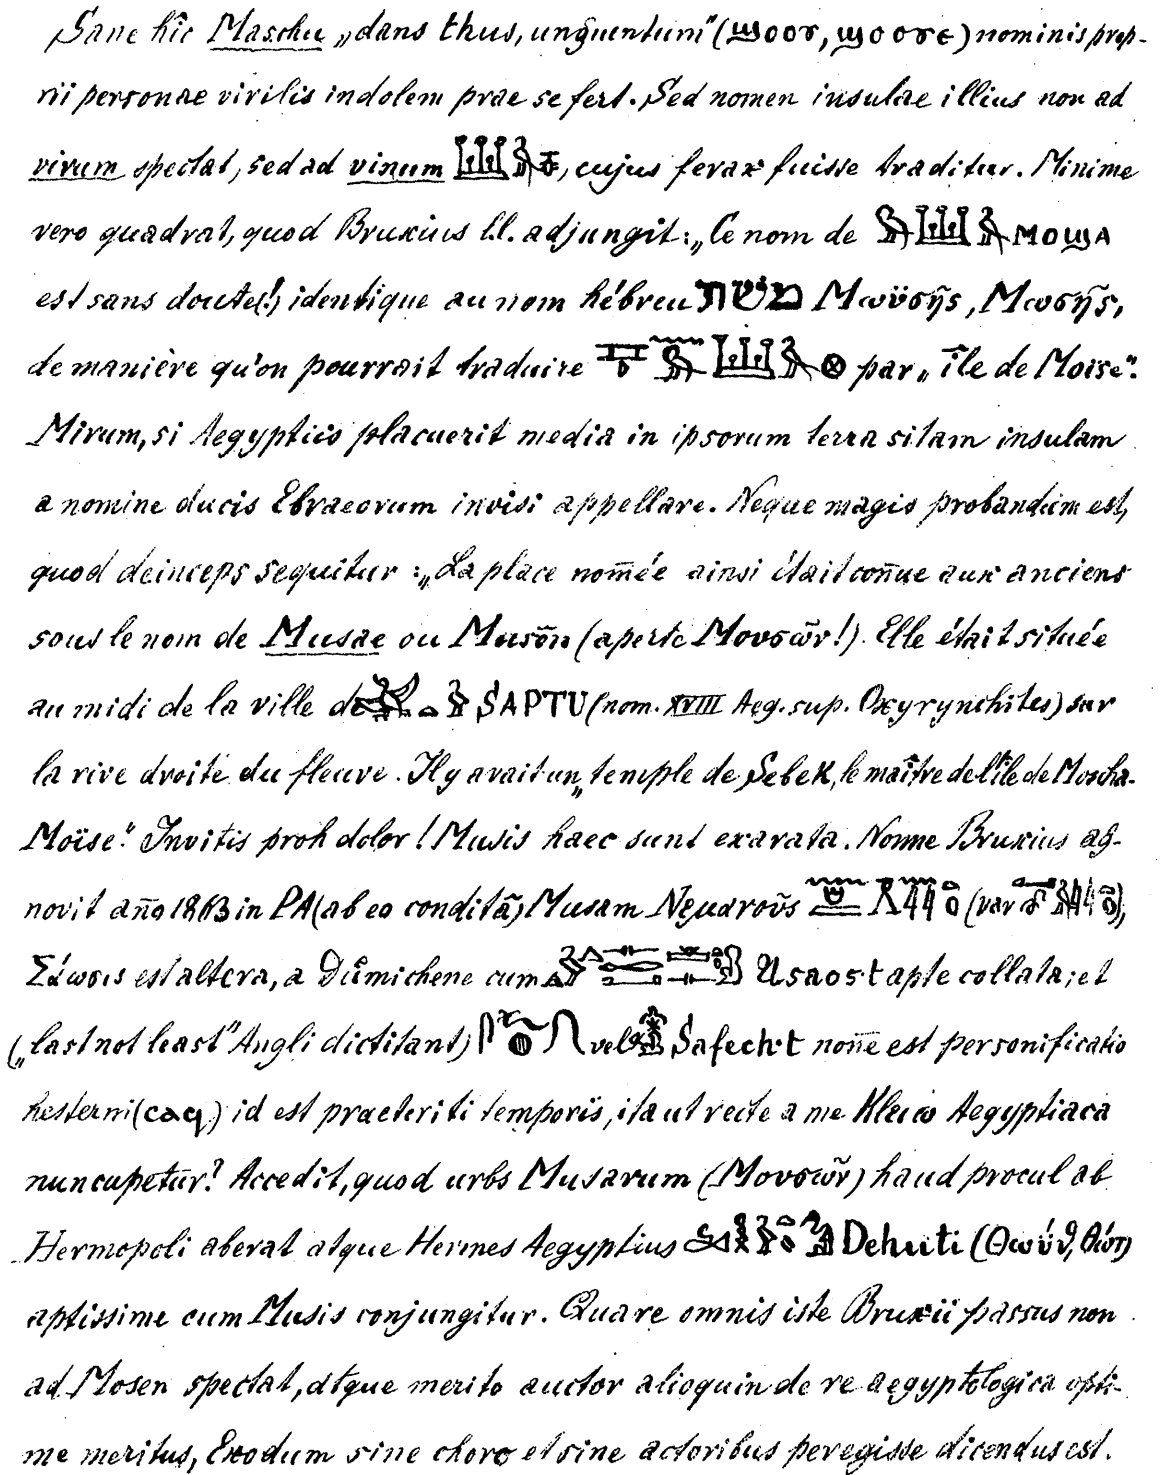 Sane hîc Maschu „dans thus, unguentum” (ϣοοσ, ϣοοσε) nominis prop-
rii personae virilis indolem prae se fert. Sed nomen insulae illius non ad
virum spectat, sed ad vinum , cujus ferax fuisse traditur. Minime
vero quadrat, quod Bruxius l.l. adjungit: „Ce nom de ⲙⲟϣⲁ
est sans doute(!) identique au nom hébreu משה Μωϋσῆς, Μωσῆς,
de manière qu'on pourrait traduire par „île de Moise”.
Mirum, si Aegyptiis placuerit media in ipsorum terra sitam insulam
a nomine ducis Ebraeorum invisi appellare. Neque magis probandum est,
quod deinceps sequitur: „La place nom̄ée ainsi était con̄ue aux anciens
sous le nom de Musae ou Musôn (aperte Μουσῶν!). Elle était située
au midi de la ville de SAPTU (nom. XVIII Aeg. sup. Oxyrynchites) sur
la rive droite du fleuve. Il y avait un „temple de Sebek, le maître de l'île de Moscha-
Moïse”. Invitis proh dolor! Musis haec sunt exarata. Nonne Bruxius ag-
novit an̄o 1863 in PA (ab eo conditâ) Musam Νεμανοῦς (var ),
Σάωσις est altera, a Dümichene cum Usaos·t apte collata; et
(„last not least” Angli dictitant) vel Safech·t non̄e est personificatio
hesterni (ⲥⲁϥ) id est praeteriti temporis, ita ut recte a me Kleiω Aegyptiaca
nuncupetur? Accedit, quod urbs Musarum (Μουσῶν) haud procul ab
Hermopoli aberat atque Hermes Aegyptius Dehuti (Θωύθ, Θώτ)
aptissime cum Musis conjungitur. Quare omnis iste Bruxii passus non
ad Mosen spectat, atque merito auctor alioquin de re aegyptologica opti-
me meritus, Exodum sine choro et sine actoribus peregisse dicendus est.